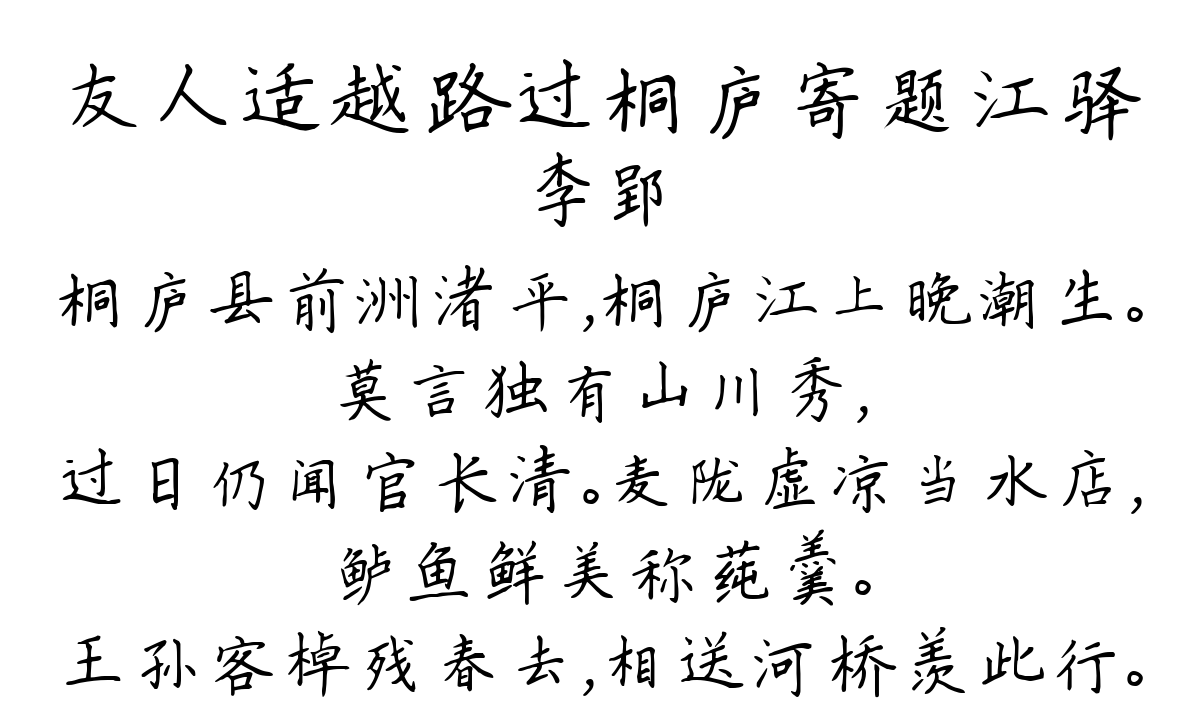 友人适越路过桐庐寄题江驿
李郢
桐庐县前洲渚平,桐庐江上晚潮生。
莫言独有山川秀,
过日仍闻官长清。麦陇虚凉当水店,
鲈鱼鲜美称莼羹。
王孙客棹残春去,相送河桥羡此行。